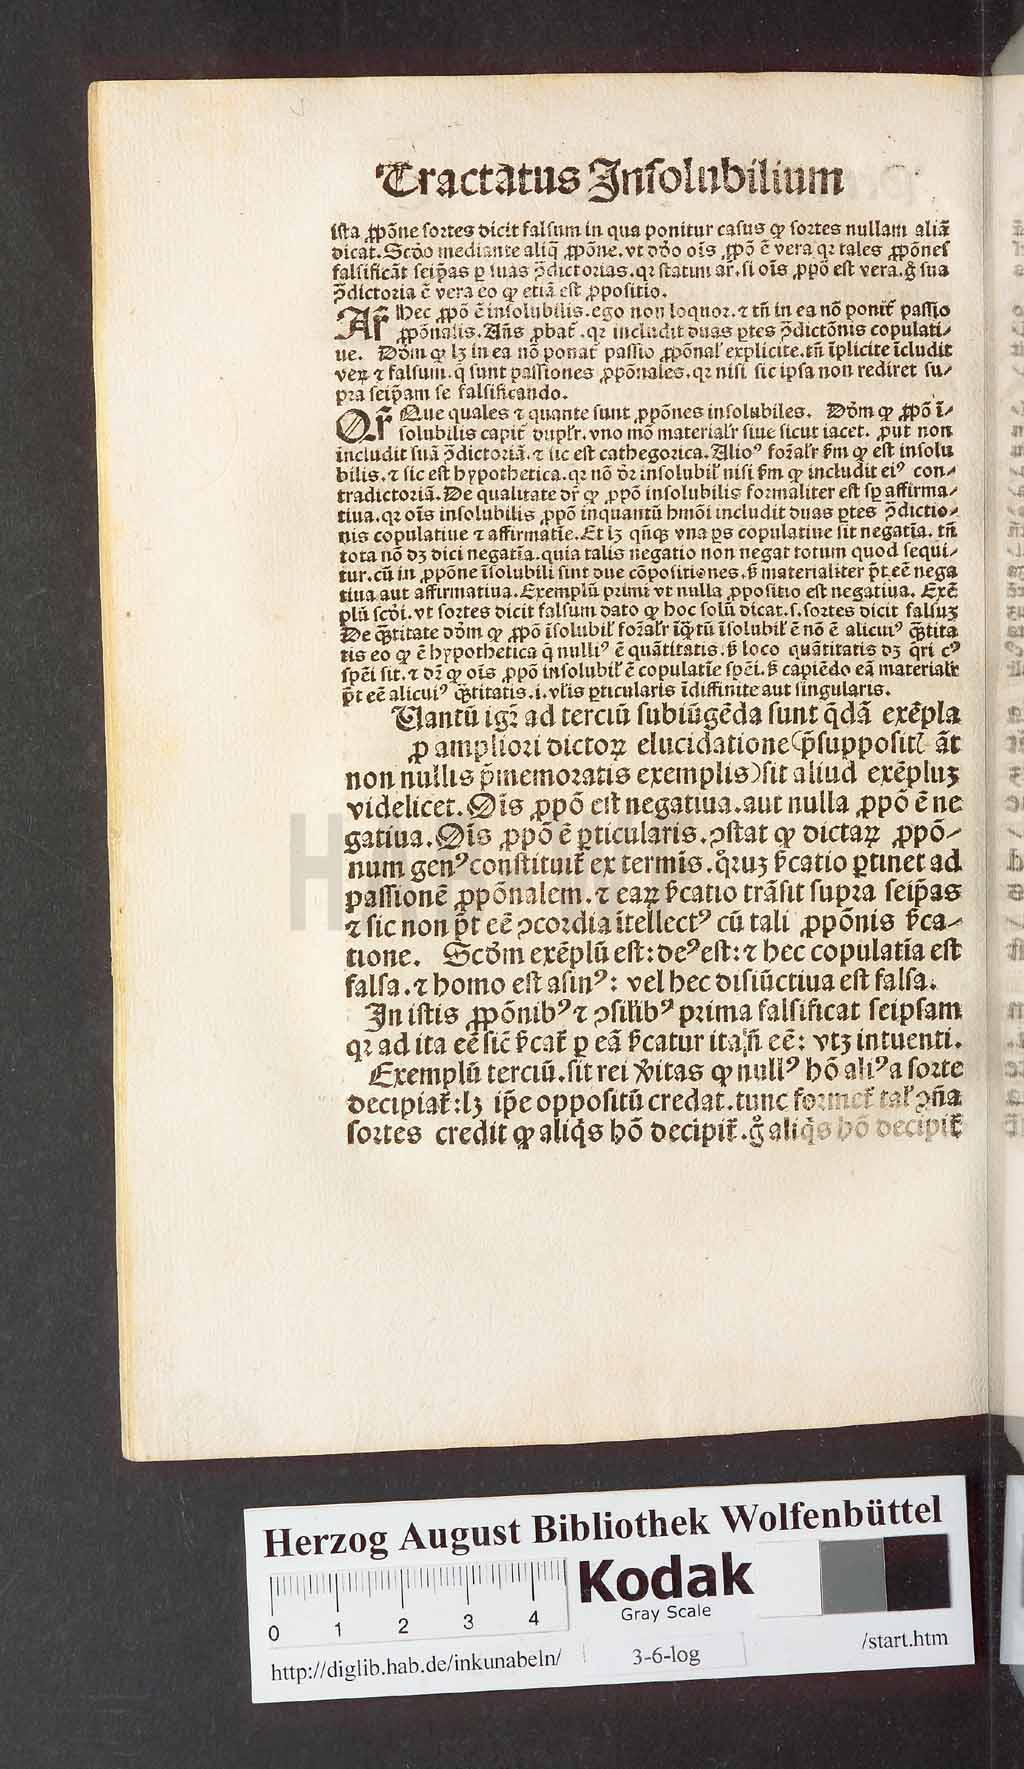 Tractatus Inſolubilium
iſta ꝓpõne ſortes dicit falſum in qua ponitur caſus ꝙ ſortes nullam aliã
dicat. Scd̓o mediante aliq̃ ꝓpõne. vt dd̓o oĩs ꝓpõ ẽ vera qꝛ tales ꝓpõnes
falſificãt ſeip̃as ꝑ ſuas ꝯ̃dictorias. qꝛ ſtatim ar̃. ſi oĩs ꝓpõ eſt vera. g̊ ſua
ꝯ̃dictoria ẽ vera eo ꝙ etiã eſt ꝓpoſitio.
Ar̃ Hec ꝓpõ ẽ inſolubilis. ego non loquor. ⁊ tñ in ea nõ ponit̃ paſſio
ꝓpõnalis. Añs ꝓbat̃. qꝛ includit duas ꝑtes ꝯ̃dictõnis copulati⸗
ue. Dd̓m ꝙ lꝫ in ea nõ ponat̃ paſſio ꝓpõnal̓ explicite. tñ ĩplicite ĩcludit
veꝝ ⁊ falſum. q̃ ſunt paſſiones ꝓpõnales. qꝛ niſi ſic ipſa non rediret ſu⸗
pra ſeip̃am ſe falſificando.
Qr̃ Que quales ⁊ quante ſunt ꝓpõnes inſolubiles. Dd̓m ꝙ ꝓpõ ĩ⸗
ſolubilis capit̃ dupl̓r. vno mõ material̓r ſiue ſicut iacet. ꝓut non
includit ſuã ꝯ̃dictoriã. ⁊ ſic eſt cathegorica. Alioꝰ formal̓r ẜm ꝙ eſt inſolu
bilis. ⁊ ſic eſt hypothetica. qꝛ nõ dr̃ inſolubil̓ niſi ẜm ꝙ includit eiꝰ con⸗
tradictoriã. De qualitate dr̃ ꝙ ꝓpõ inſolubilis formaliter eſt ſꝑ affirma⸗
tiua. qꝛ oĩs inſolubilis ꝓpõ inquantũ hmõi includit duas ꝑtes ꝯ̃dictio⸗
nis copulatiue ⁊ affirmatĩe. Et lꝫ qñqꝫ vna ꝑs copulatiue ſit negatĩa. tñ
tota nõ dꝫ dici negatĩa. quia talis negatio non negat totum quod ſequi⸗
tur. cũ in ꝓpõne ĩſolubili ſint due cõpoſitiones. ẜ materialiter p̃t eẽ nega
tiua aut affirmatiua. Exemplũ primi vt nulla ꝓpoſitio eſt negatiua. Exẽ
plũ ſcd̓i. vt ſortes dicit falſum dato ꝙ hoc ſolũ dicat. ſ. ſortes dicit falſuꝫ
De q̃ntitate dd̓m ꝙ ꝓpõ ĩſolubil̓ formal̓r ĩq̃ꝫtũ ĩſolubil̓ ẽ nõ ẽ alicuiꝰ q̃ntita
tis eo ꝙ ẽ hypothetica q̃ nulliꝰ ẽ quãtitatis. ẜ loco quãtitatis dꝫ q̃ri cꝰ
ſpẽi ſit. ⁊ dr̃ ꝙ oĩs ꝓpõ inſolubil̓ ẽ copulatĩe ſpẽi. ẜ capiẽdo eã material̓r
p̃t eẽ alicuiꝰ q̃ntitatis. i. vl̓is ꝑticularis ĩdiffinite aut ſingularis.
Quantũ igr̃ ad terciũ ſubiũgẽda ſunt q̃dã exẽpla
ꝓ ampliori dictoꝝ elucidatione (p̃ſuppoſit̃ ãt
non nullis p̃memoratis exemplis) ſit aliud exẽpluꝫ
videlicet. Oĩs ꝓpõ eſt negatiua. aut nulla ꝓpõ ẽ ne
gatiua. Oĩs ꝓpõ ẽ ꝑticularis. ꝯſtat ꝙ dictaꝝ ꝓpõ⸗
num genꝰ conſtituit̃ ex termĩs. q̊ꝛuꝫ ẜcatio ꝑtinet ad
paſſionẽ ꝓpõnalem. ⁊ eaꝝ ẜcatio trãſit ſupra ſeip̃as
⁊ ſic non p̃t eẽ ꝯcordia ĩtellectꝰ cũ tali ꝓpõnis ẜca⸗
tione. Scd̓m exẽplũ eſt: deꝰ eſt: ⁊ hec copulatĩa eſt
falſa. ⁊ homo eſt aſinꝰ: vel hec diſiũctiua eſt falſa.
In iſtis ꝓpõnibꝰ ⁊ ꝯſil̓ibꝰ prima falſificat ſeipſam
qꝛ ad ita eẽ ſic̃ ẜcat̃ ꝑ eã ẜcatur ita ñ eẽ: vtꝫ intuenti.
Exemplũ terciũ. ſit rei v̓itas ꝙ nullꝰ hõ aliꝰ a ſorte
decipiat̃: lꝫ ip̃e oppoſitũ credat. tunc formet̃ tal̓ ꝯña
ſortes credit ꝙ aliq̓s hõ decipit̃. g̊ aliq̓s hõ decipit̃
Herzog August Bibliothek Wolfenbüttel
Kodak
Gray Scale
0 1 2 3 4
http://diglib.hab.de/inkunabeln/ 3-6-log /start.htm